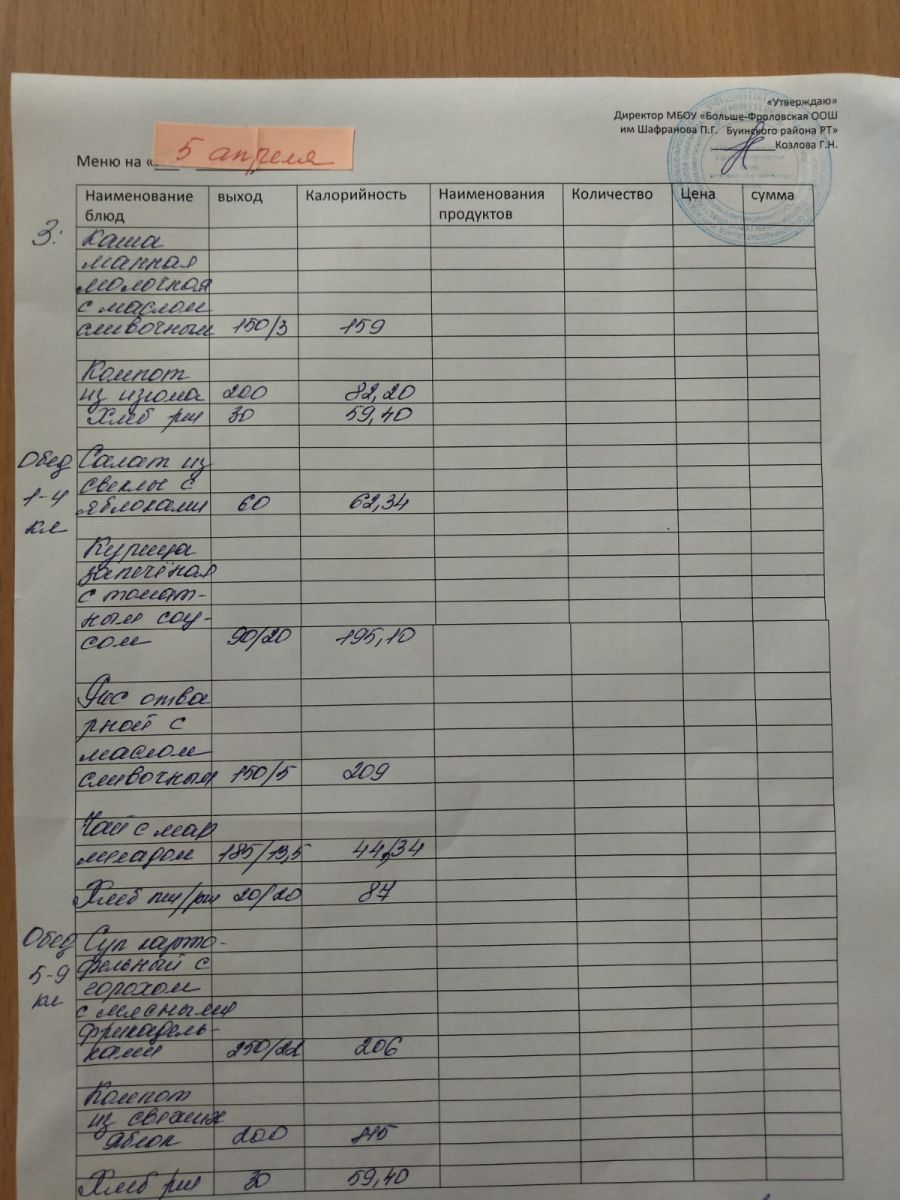 «Утверждаю»
Директор МБОУ «Больше-Фроловская ООШ
им Шафранова П.Г. Буинского района РТ»
Козлова Г.Н.
Меню на « 5 апреля
Наименование блюд выход Калорийность Наименования продуктов Количество Цена сумма
З: Каша
манная
молочная
с маслом
сливочным 150/3 159
Компот
из изюма 200 82,20
Хлеб рж 30 59,40
Обед Салат из
1-4 свеклы с
кл яблоками 60 62,34
Курица
запечёная
с томат-
ным соу-
сом 90/20 195,10
Рис отва
рной с
маслом
сливочным 150/5 209
Чай с мар
меладом 185/13,5 44,34
Хлеб пш/рж 20/20 87
Обед Суп карто-
5-9 фельный с
кл горохом
с мясными
фрикадель-
ками 250/22 206
Компот
из свежих
яблок 200 115
Хлеб рж 30 59,40